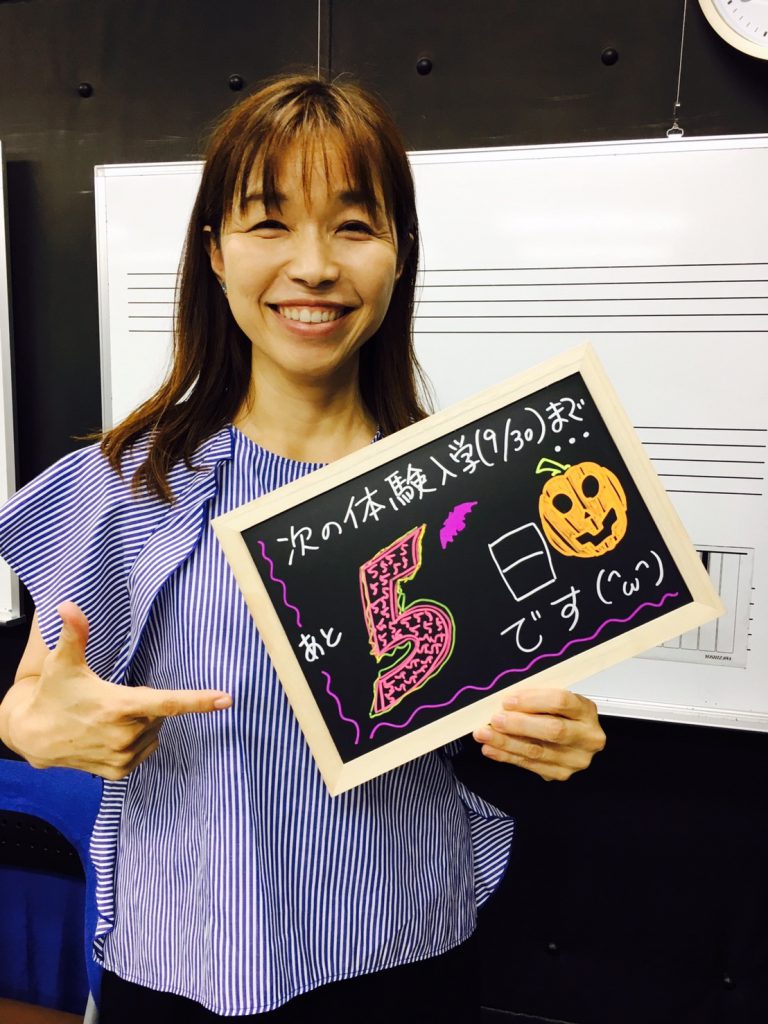 次の体験入学(9/30)まで...
あと5日
です(^ω^)